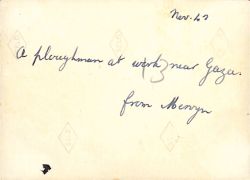 Nov. 42
A ploughman at work near Gaza.
from Mervyn